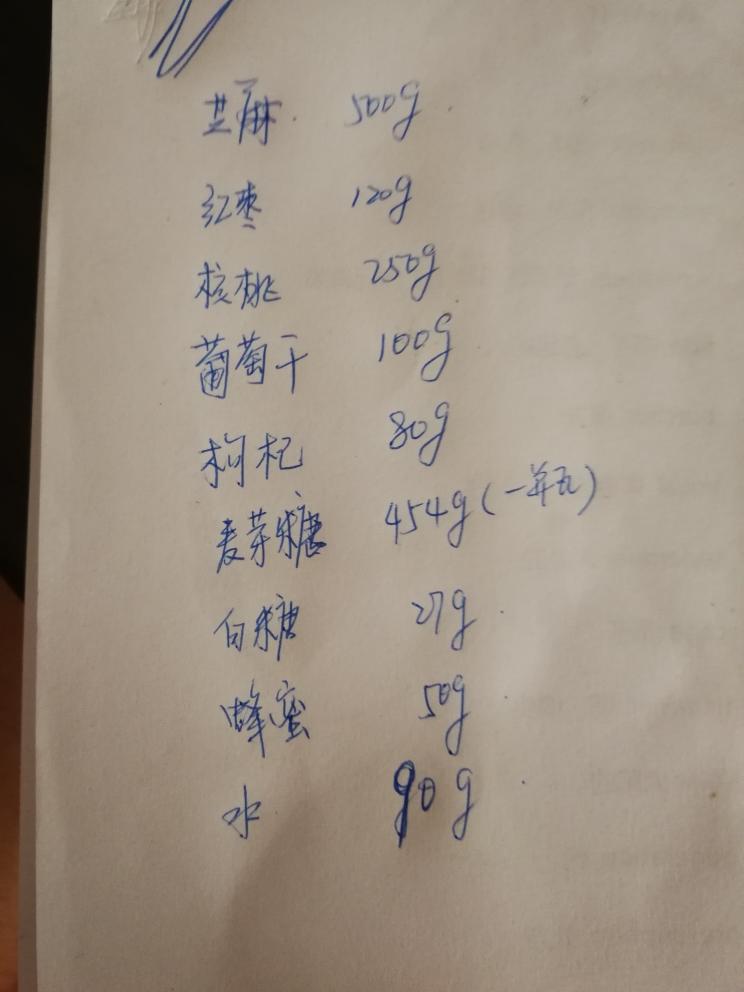 芝麻 500g
红枣 120g
核桃 250g
葡萄干 100g
枸杞 80g
麦芽糖 454g(一并瓦)
白糖 27g
蜂蜜 50g
水 90g